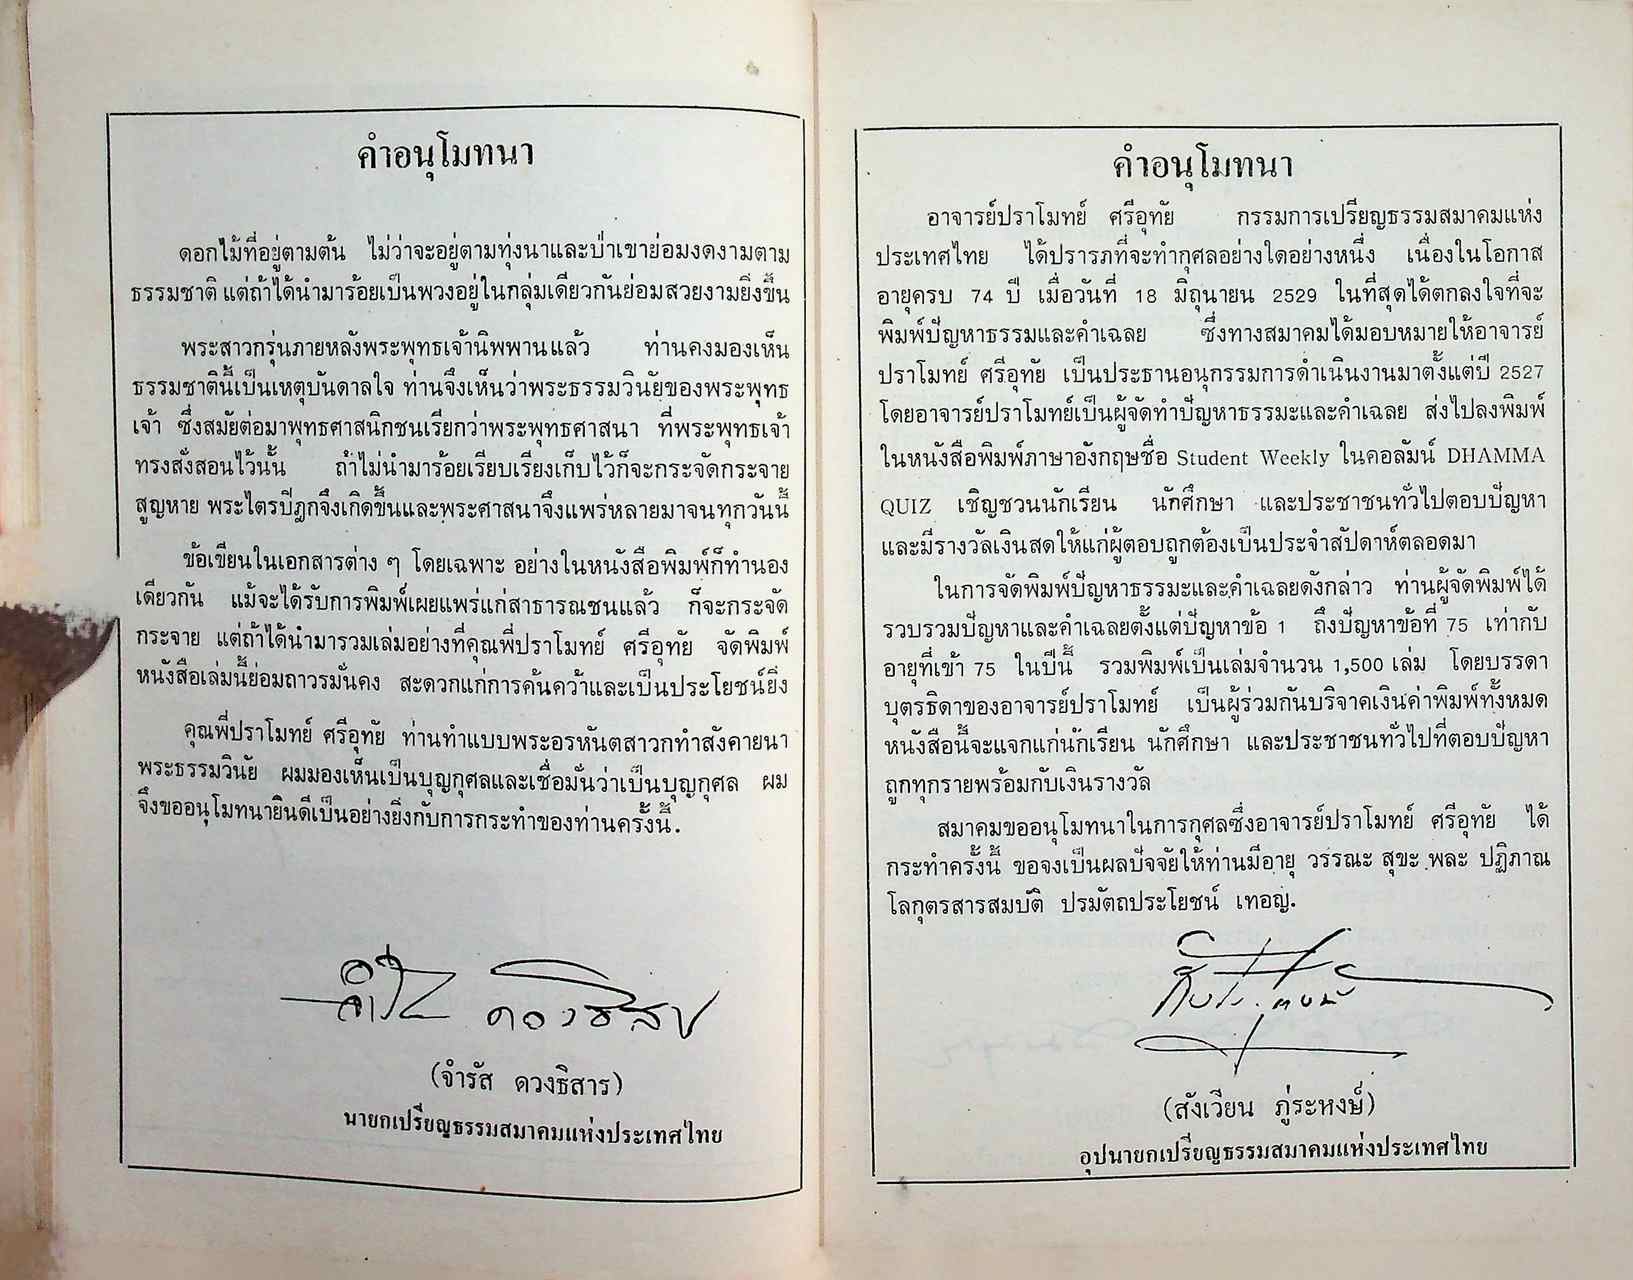 คำอนุโมทนา
ดอกไม้ที่อยู่ตามต้น ไม่ว่าจะอยู่ตามทุ่งนาและป่าเขาย่อมงดงามตาม
ธรรมชาติ แต่ถ้าได้นำมาร้อยเป็นพวงอยู่ในกลุ่มเดียวกันย่อมสวยงามยิ่งขึ้น
พระสาวกรุ่นภายหลังพระพุทธเจ้านิพพานแล้ว ท่านคงมองเห็น
ธรรมชาตินี้เป็นเหตุบันดาลใจ ท่านจึงเห็นว่าพระธรรมวินัยของพระพุทธ
เจ้า ซึ่งสมัยต่อมาพุทธศาสนิกชนเรียกว่าพระพุทธศาสนา ที่พระพุทธเจ้า
ทรงสั่งสอนไว้นั้น ถ้าไม่นำมาร้อยเรียบเรียงเก็บไว้ก็จะกระจัดกระจาย
สูญหาย พระไตรปิฎกจึงเกิดขึ้นและพระศาสนาจึงแพร่หลายมาจนทุกวันนี้
ข้อเขียนในเอกสารต่าง ๆ โดยเฉพาะ อย่างในหนังสือพิมพ์ก็ทำนอง
เดียวกัน แม้จะได้รับการพิมพ์เผยแพร่แก่สาธารณชนแล้ว ก็จะกระจัด
กระจาย แต่ถ้าได้นำมารวมเล่มอย่างที่คุณพี่ปราโมทย์ ศรีอุทัย จัดพิมพ์
หนังสือเล่มนี้ย่อมถาวรมั่นคง สะดวกแก่การค้นคว้าและเป็นประโยชน์ยิ่ง
คุณพี่ปราโมทย์ ศรีอุทัย ท่านทำแบบพระอรหันตสาวกทำสังคายนา
พระธรรมวินัย ผมมองเห็นเป็นบุญกุศลและเชื่อมั่นว่าเป็นบุญกุศล ผม
จึงขออนุโมทนายินดีเป็นอย่างยิ่งกับการกระทำของท่านครั้งนี้.
จำรัส ดวงธิสาร
(จำรัส ดวงธิสาร)
นายกเปรียญธรรมสมาคมแห่งประเทศไทย
คำอนุโมทนา
อาจารย์ปราโมทย์ ศรีอุทัย กรรมการเปรียญธรรมสมาคมแห่ง
ประเทศไทย ได้ปรารภที่จะทำกุศลอย่างใดอย่างหนึ่ง เนื่องในโอกาส
อายุครบ 74 ปี เมื่อวันที่ 18 มิถุนายน 2529 ในที่สุดได้ตกลงใจที่จะ
พิมพ์ปัญหาธรรมและคำเฉลย ซึ่งทางสมาคมได้มอบหมายให้อาจารย์
ปราโมทย์ ศรีอุทัย เป็นประธานอนุกรรมการดำเนินงานมาตั้งแต่ปี 2527
โดยอาจารย์ปราโมทย์เป็นผู้จัดทำปัญหาธรรมะและคำเฉลย ส่งไปลงพิมพ์
ในหนังสือพิมพ์ภาษาอังกฤษชื่อ Student Weekly ในคอลัมน์ DHAMMA
QUIZ เชิญชวนนักเรียน นักศึกษา และประชาชนทั่วไปตอบปัญหา
และมีรางวัลเงินสดให้แก่ผู้ตอบถูกต้องเป็นประจำสัปดาห์ตลอดมา
ในการจัดพิมพ์ปัญหาธรรมะและคำเฉลยดังกล่าว ท่านผู้จัดพิมพ์ได้
รวบรวมปัญหาและคำเฉลยตั้งแต่ปัญหาข้อ 1 ถึงปัญหาข้อที่ 75 เท่ากับ
อายุที่เข้า 75 ในปีนี้ รวมพิมพ์เป็นเล่มจำนวน 1,500 เล่ม โดยบรรดา
บุตรธิดาของอาจารย์ปราโมทย์ เป็นผู้ร่วมกันบริจาคเงินค่าพิมพ์ทั้งหมด
หนังสือนี้จะแจกแก่นักเรียน นักศึกษา และประชาชนทั่วไปที่ตอบปัญหา
ถูกทุกรายพร้อมกับเงินรางวัล
สมาคมขออนุโมทนาในการกุศลซึ่งอาจารย์ปราโมทย์ ศรีอุทัย ได้
กระทำครั้งนี้ ขอจงเป็นผลปัจจัยให้ท่านมีอายุ วรรณะ สุขะ พละ ปฏิภาณ
โลกุตรสารสมบัติ ปรมัตถประโยชน์ เทอญ.
(สังเวียน ภู่ระหงษ์)
อุปนายกเปรียญธรรมสมาคมแห่งประเทศไทย